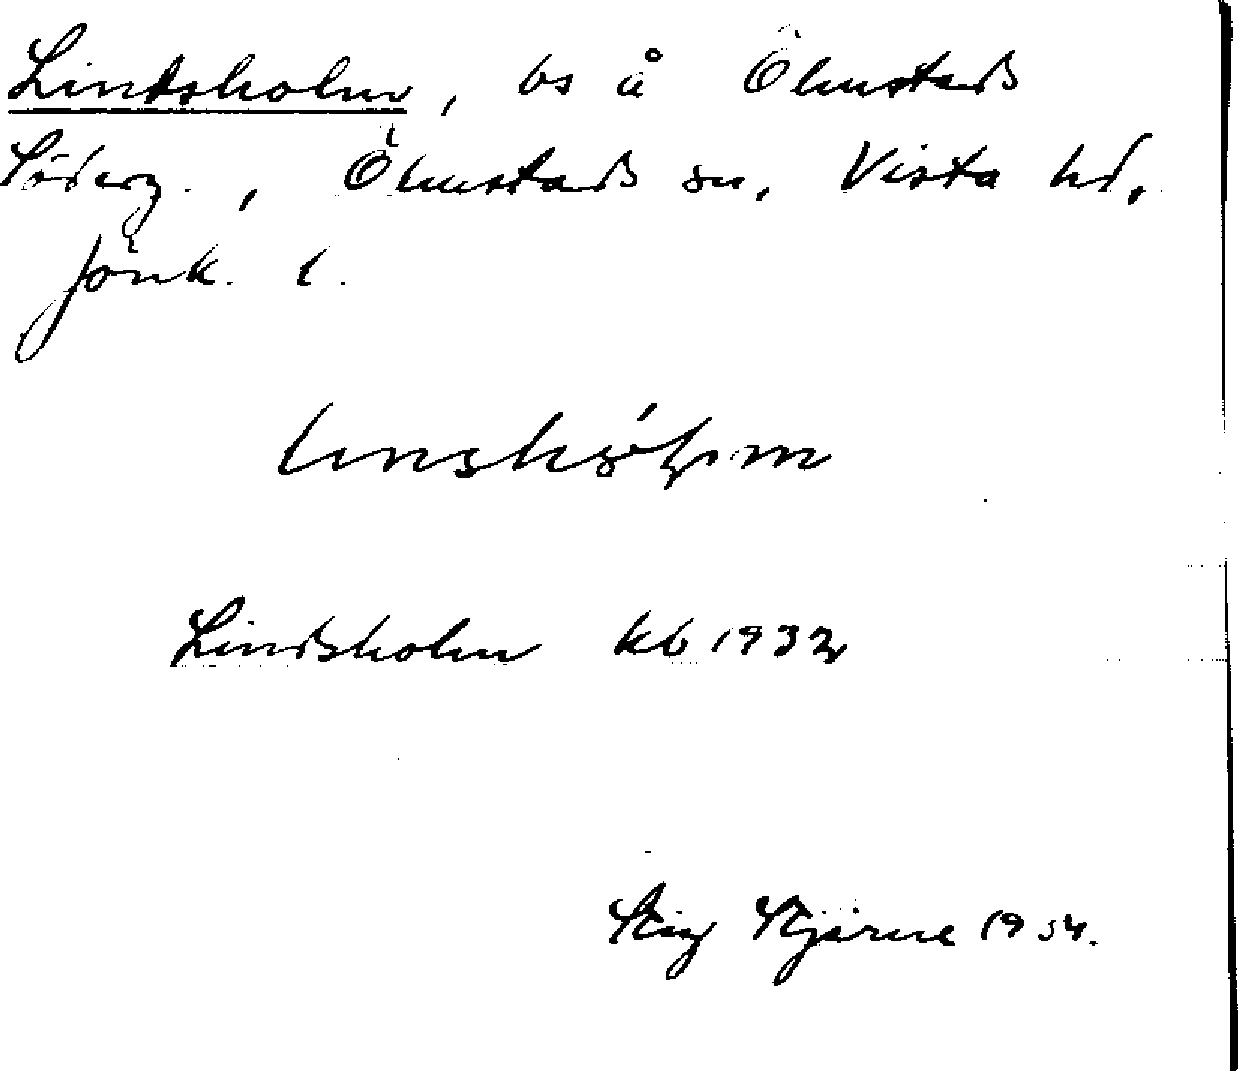 Lindsholm, bs å Ölmstads
Söderg., Ölmstads sn, Vista hd,
Jönk. l.
Lindsholm kb 1932
Stig Stjärne 1954.